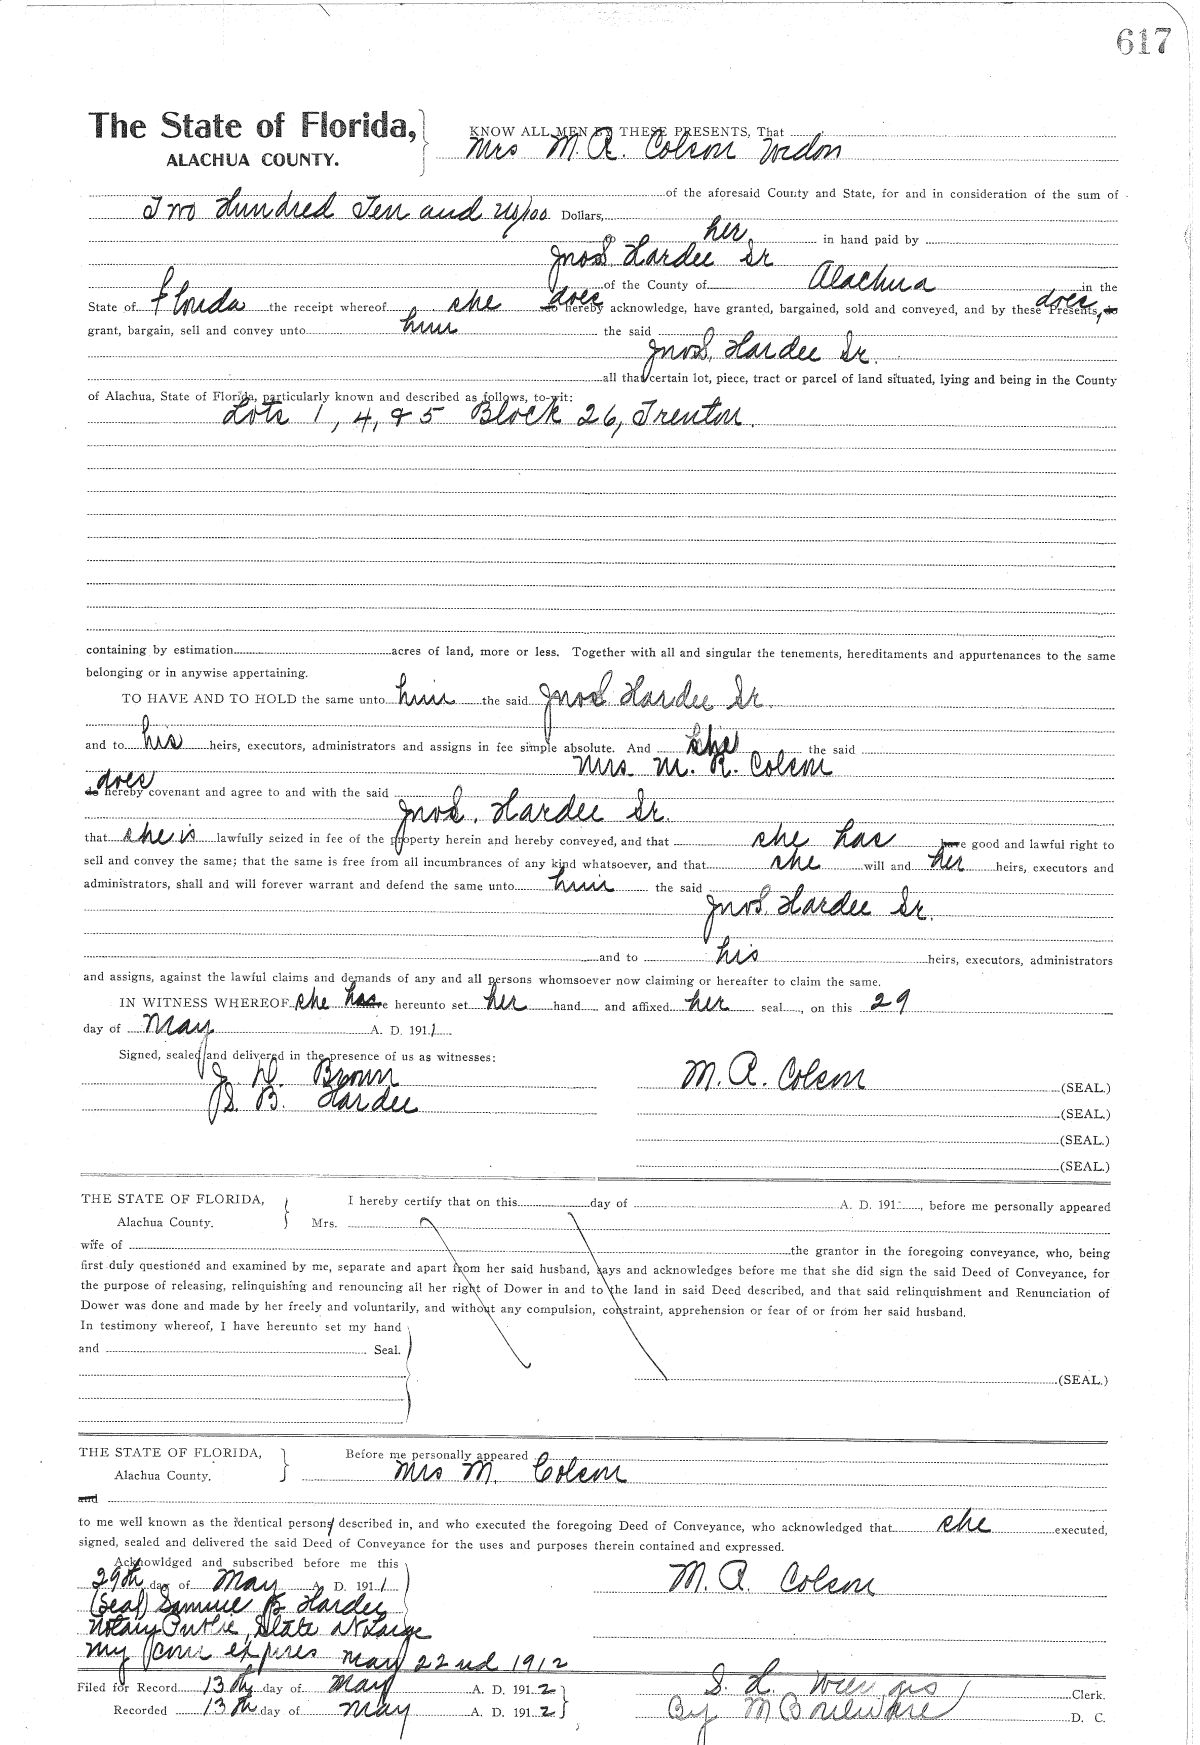 617
The State of Florida,
ALACHUA COUNTY.
KNOW ALL MEN BY THESE PRESENTS, That
Mrs M. R. Colson Widon
of the aforesaid County and State, for and in consideration of the sum of
Two Hundred Ten and no/100 Dollars,
her in hand paid by
Jno S. Hardee Sr
of the County of Alachua in the
State of Florida the receipt whereof she does do hereby acknowledge, have granted, bargained, sold and conveyed, and by these Presents, does do
grant, bargain, sell and convey unto him the said
Jno S. Hardee Sr.
all that certain lot, piece, tract or parcel of land situated, lying and being in the County
of Alachua, State of Florida, particularly known and described as follows, to-wit:
Lots 1, 4, & 5 Block 26, Trenton.
containing by estimation acres of land, more or less. Together with all and singular the tenements, hereditaments and appurtenances to the same
belonging or in anywise appertaining.
TO HAVE AND TO HOLD the same unto him the said Jno S. Hardee Sr.
and to his heirs, executors, administrators and assigns in fee simple absolute. And she the said
Mrs. M. R. Colson
does do hereby covenant and agree to and with the said
Jno S. Hardee Sr.
that she is lawfully seized in fee of the property herein and hereby conveyed, and that she has have good and lawful right to
sell and convey the same; that the same is free from all incumbrances of any kind whatsoever, and that she will and her heirs, executors and
administrators, shall and will forever warrant and defend the same unto him the said
Jno S. Hardee Sr.
and to his heirs, executors, administrators
and assigns, against the lawful claims and demands of any and all persons whomsoever now claiming or hereafter to claim the same.
IN WITNESS WHEREOF she has have hereunto set her hand and affixed her seal, on this 29
day of May A. D. 1911
Signed, sealed and delivered in the presence of us as witnesses:
J. D. Brown
S. B. Hardee
M. R. Colson (SEAL.)
(SEAL.)
(SEAL.)
(SEAL.)
THE STATE OF FLORIDA,
Alachua County.
I hereby certify that on this day of A. D. 191 , before me personally appeared
Mrs.
wife of the grantor in the foregoing conveyance, who, being
first duly questioned and examined by me, separate and apart from her said husband, says and acknowledges before me that she did sign the said Deed of Conveyance, for
the purpose of releasing, relinquishing and renouncing all her right of Dower in and to the land in said Deed described, and that said relinquishment and Renunciation of
Dower was done and made by her freely and voluntarily, and without any compulsion, constraint, apprehension or fear of or from her said husband.
In testimony whereof, I have hereunto set my hand
and Seal.
(SEAL.)
THE STATE OF FLORIDA,
Alachua County.
Before me personally appeared
Mrs M. Colson
and
to me well known as the identical persons described in, and who executed the foregoing Deed of Conveyance, who acknowledged that she executed,
signed, sealed and delivered the said Deed of Conveyance for the uses and purposes therein contained and expressed.
Acknowldged and subscribed before me this
29th day of May A. D. 1911
M. R. Colson
(Seal) Samuel B Hardee
Notary Public, State at Large
My com expires May 22nd 1912
Filed for Record 13th day of May A. D. 1912
Recorded 13th day of May A. D. 1912
S. H. Wienges Clerk.
By M Bouleware D. C.